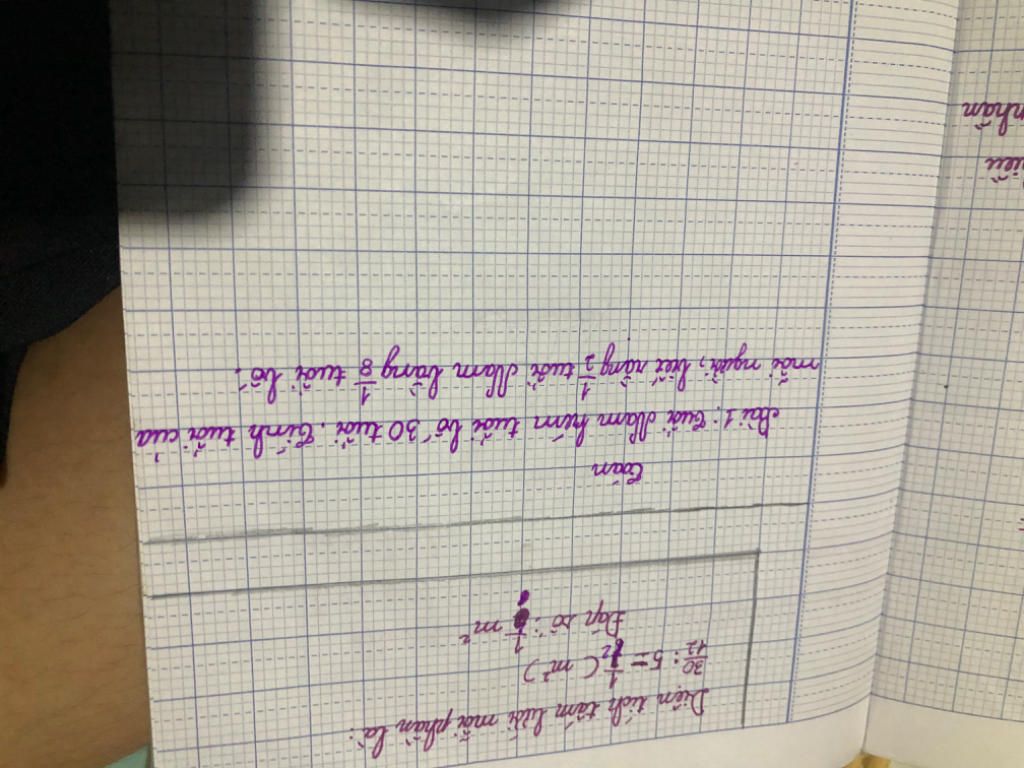 Diện tích tấm lưới mỗi phần là:
30/12 : 5 = 1/2 ( m² )
Đáp số: m²
Toán
Bài 1: Tuổi Nam kém tuổi bố 30 tuổi. Tính tuổi của
mỗi người, biết rằng 1/2 tuổi Nam bằng 1/8 tuổi bố.
nhân